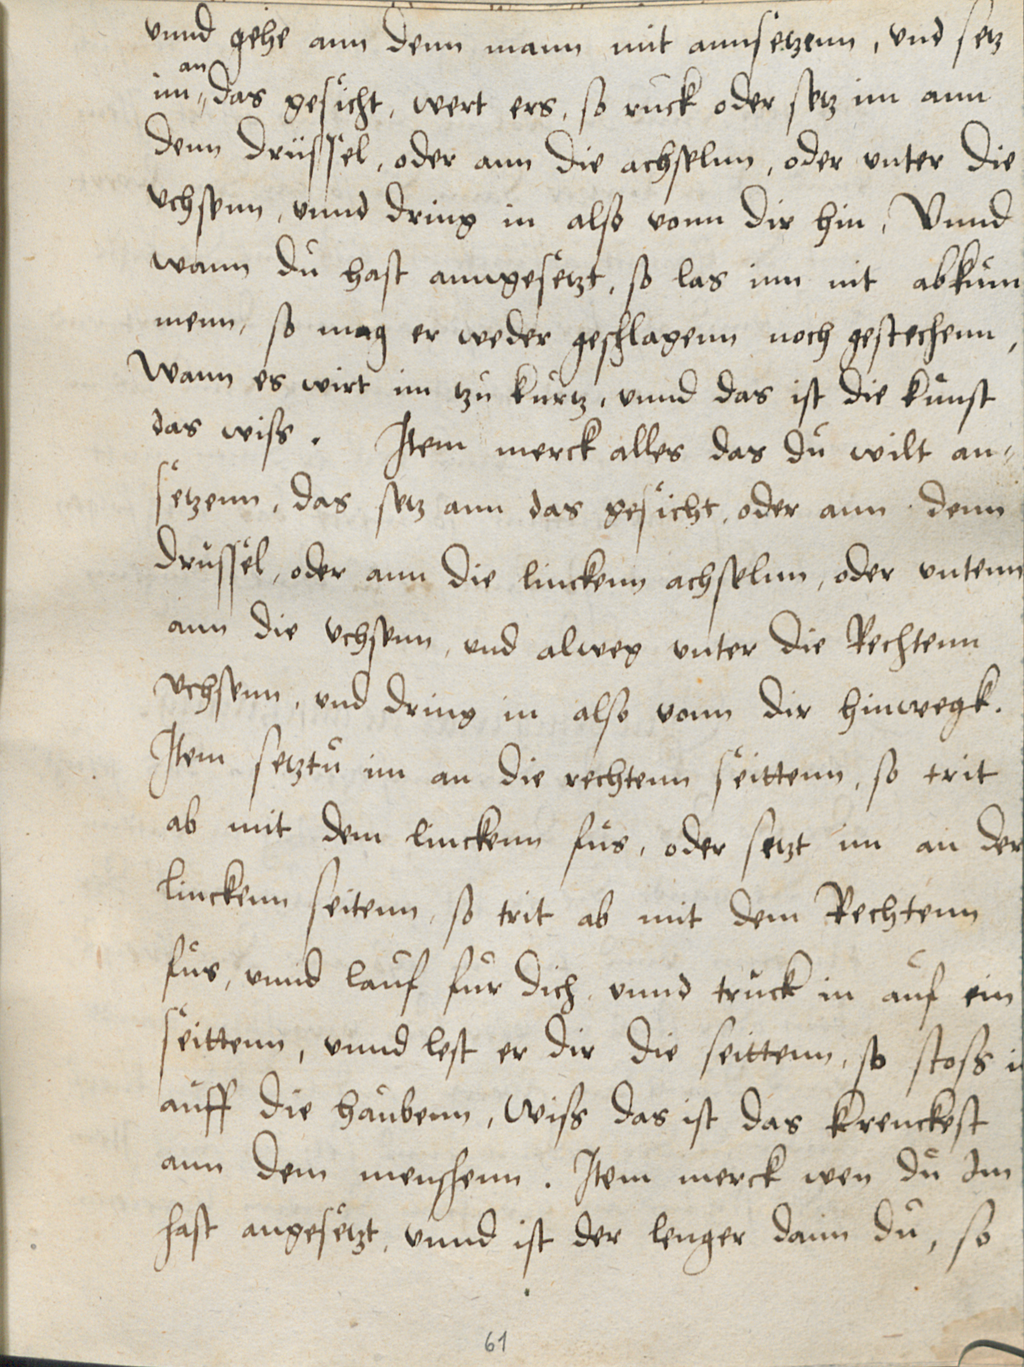 vnnd gehe ann denn mann mit annsetzenn, vnd setz
an
im das gesicht, wert ers, so ruck oder setz im ann
denn drüssel, oder ann die achselnn, oder vnter die
vchsenn, vnnd dring in also vonn dir hin, Vnnd
wann du hast anngesetzt, so las inn nit abkum
menn, so mag er weder geschlagenn noch gestechenn,
Wann es wirt im tzu kurtz, vnnd das ist die kunst
das wiss. Item merck alles das du wilt an=
setzenn, das setz ann das gesicht, oder ann denn
drussel, oder ann die linckenn achselnn, oder vntenn
ann die vchsenn, vnd alweg vnter die Rechtenn
vchsenn, vnd dring in also vonn dir hinwegk.
Item setztu im an die rechtenn seittenn, so trit
ab mit dem linckenn fus, oder setzt im an der
linckenn seitenn, so trit ab mit dem Rechtenn
fus, vnnd lauf fur dich, vnnd truck in auf ein
seittenn, vnnd lest er dir die seittenn, so stoss i
auff die haubenn, Wiss das ist das krenckest
ann dem menschenn. Item merck wen du Im
hast angesetzt, vnnd ist der lenger dann du, so
61